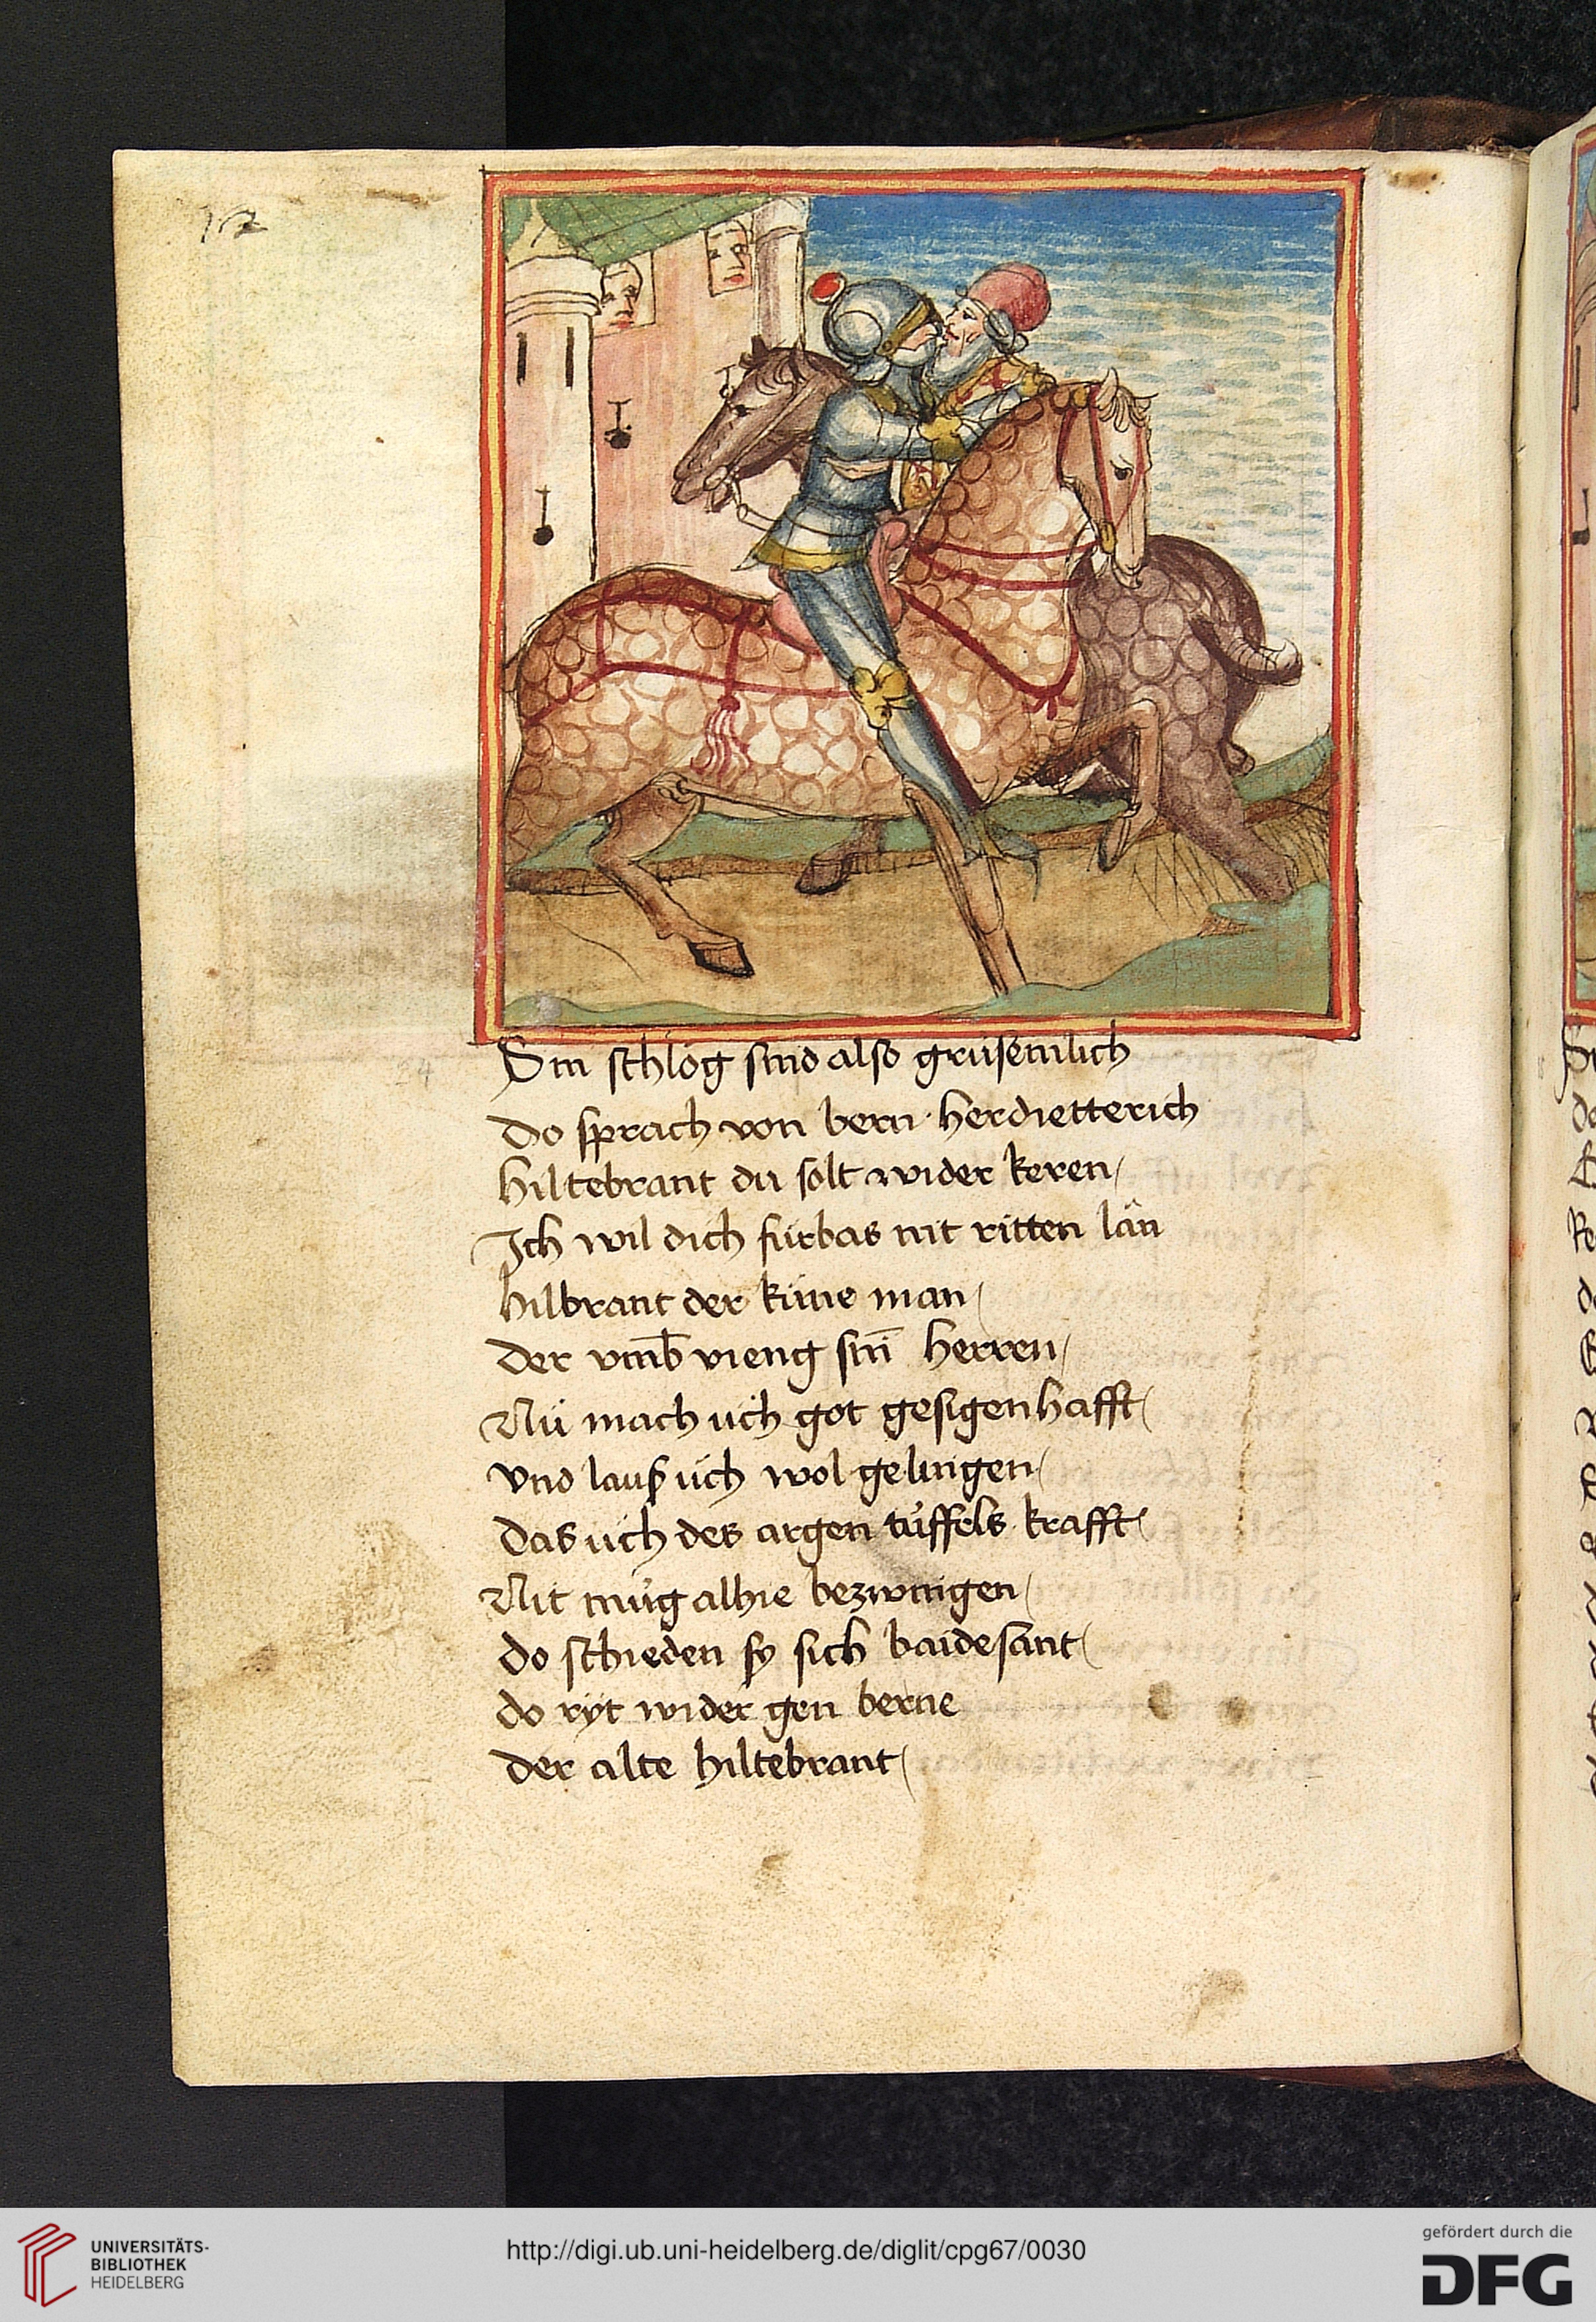 12
24
Sin schlög sind also grüsemlich
Do sprach von bern herdietterich
hiltebrant du solt wider keren
Ich wil dich fürbas nit ritten län
hilbrant der küne man
der vmb vieng sin̄ herren
Nü mach üch got gesigenhafft
vnd lauß üch wol gelingen
das üch des argen tüffels krafft
Nit müg alhie bezwingen
do schieden sy sich baidesant
do ryt wider gen berne
der alte hiltebrant
UNIVERSITÄTS-
BIBLIOTHEK
HEIDELBERG
http://digi.ub.uni-heidelberg.de/diglit/cpg67/0030
gefördert durch die
DFG